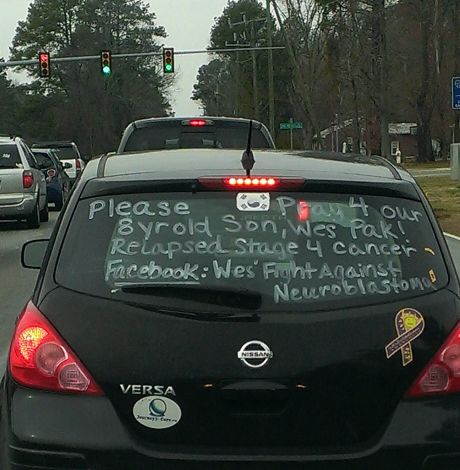 Please Pray 4 our
8yrold Son, Wes Pak!
Relapsed Stage 4 cancer
Facebook: Wes' Fight Against
Neuroblastoma
NISSAN
VERSA